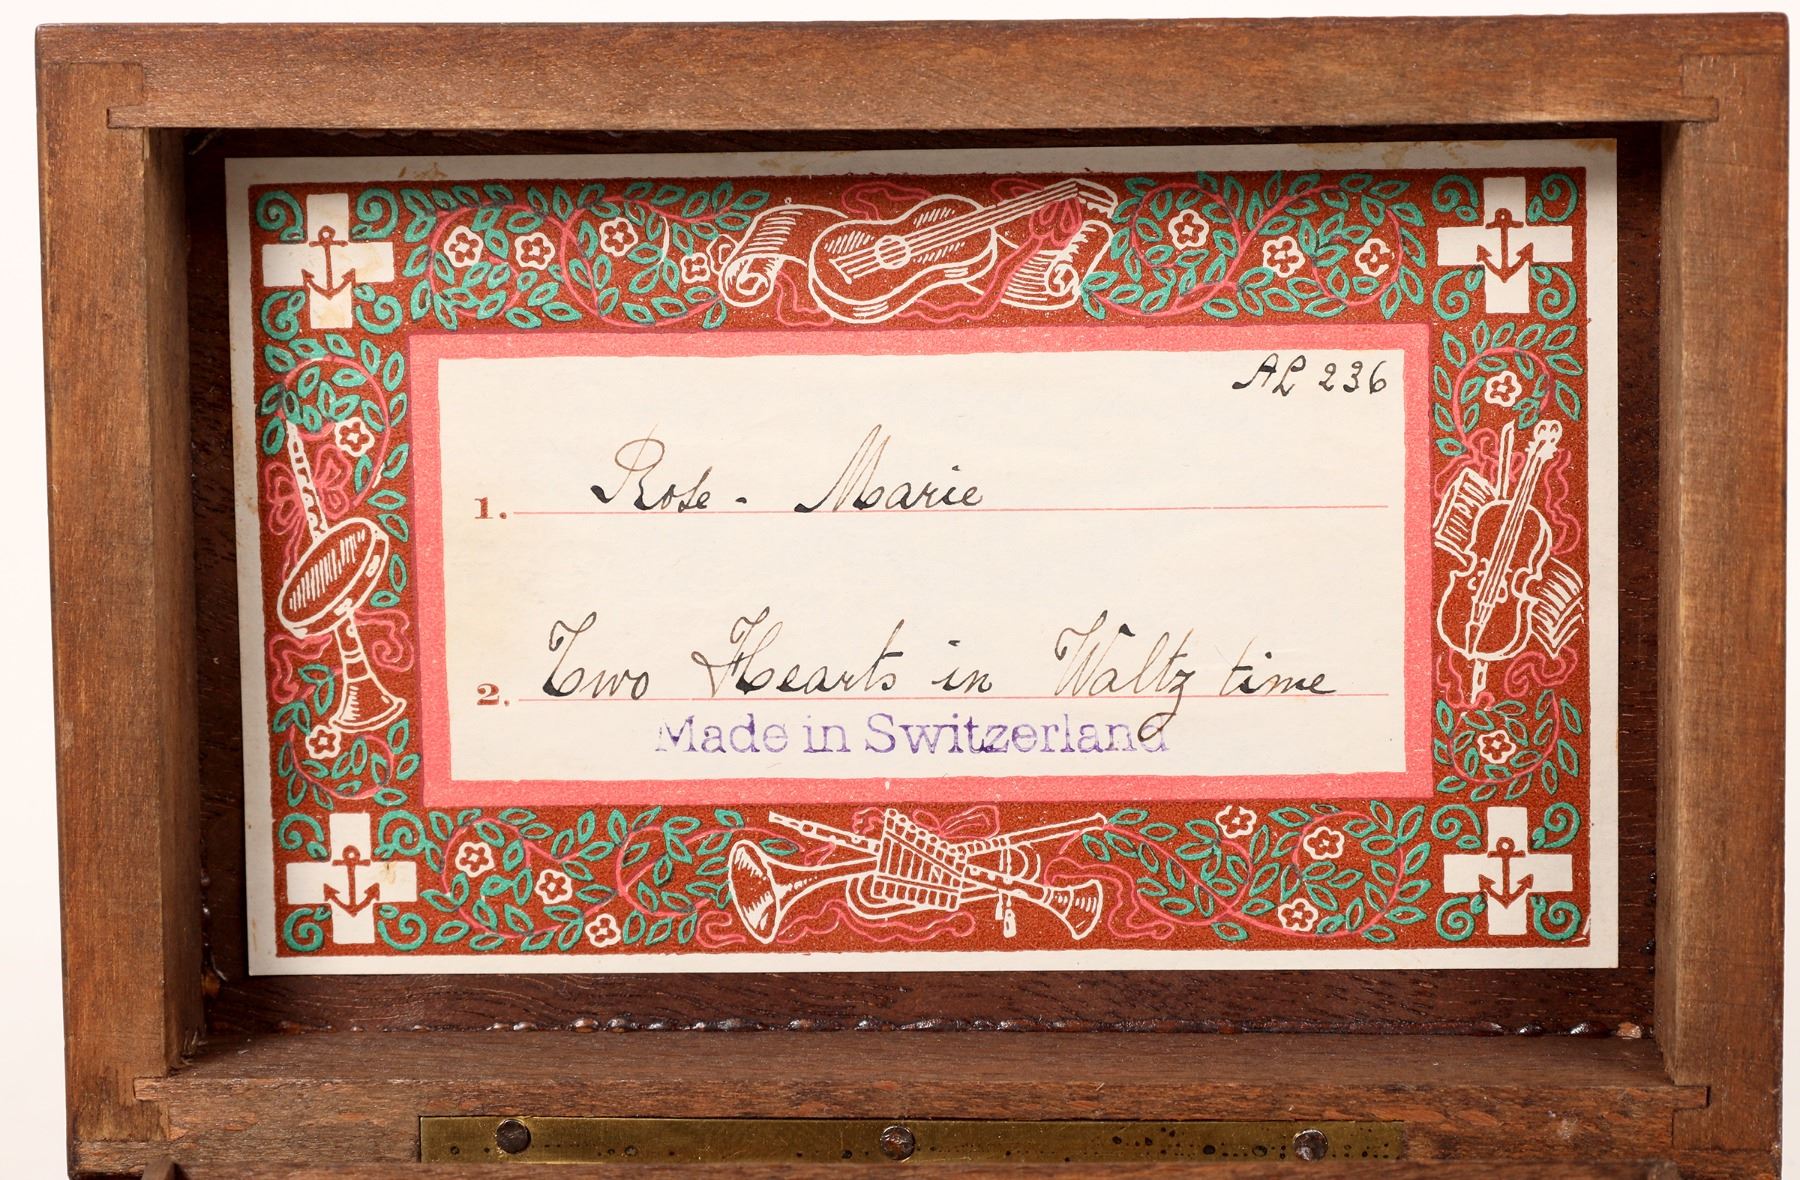 AL 236
1. Rose - Marie
2. Two Hearts in Waltz time
Made in Switzerland